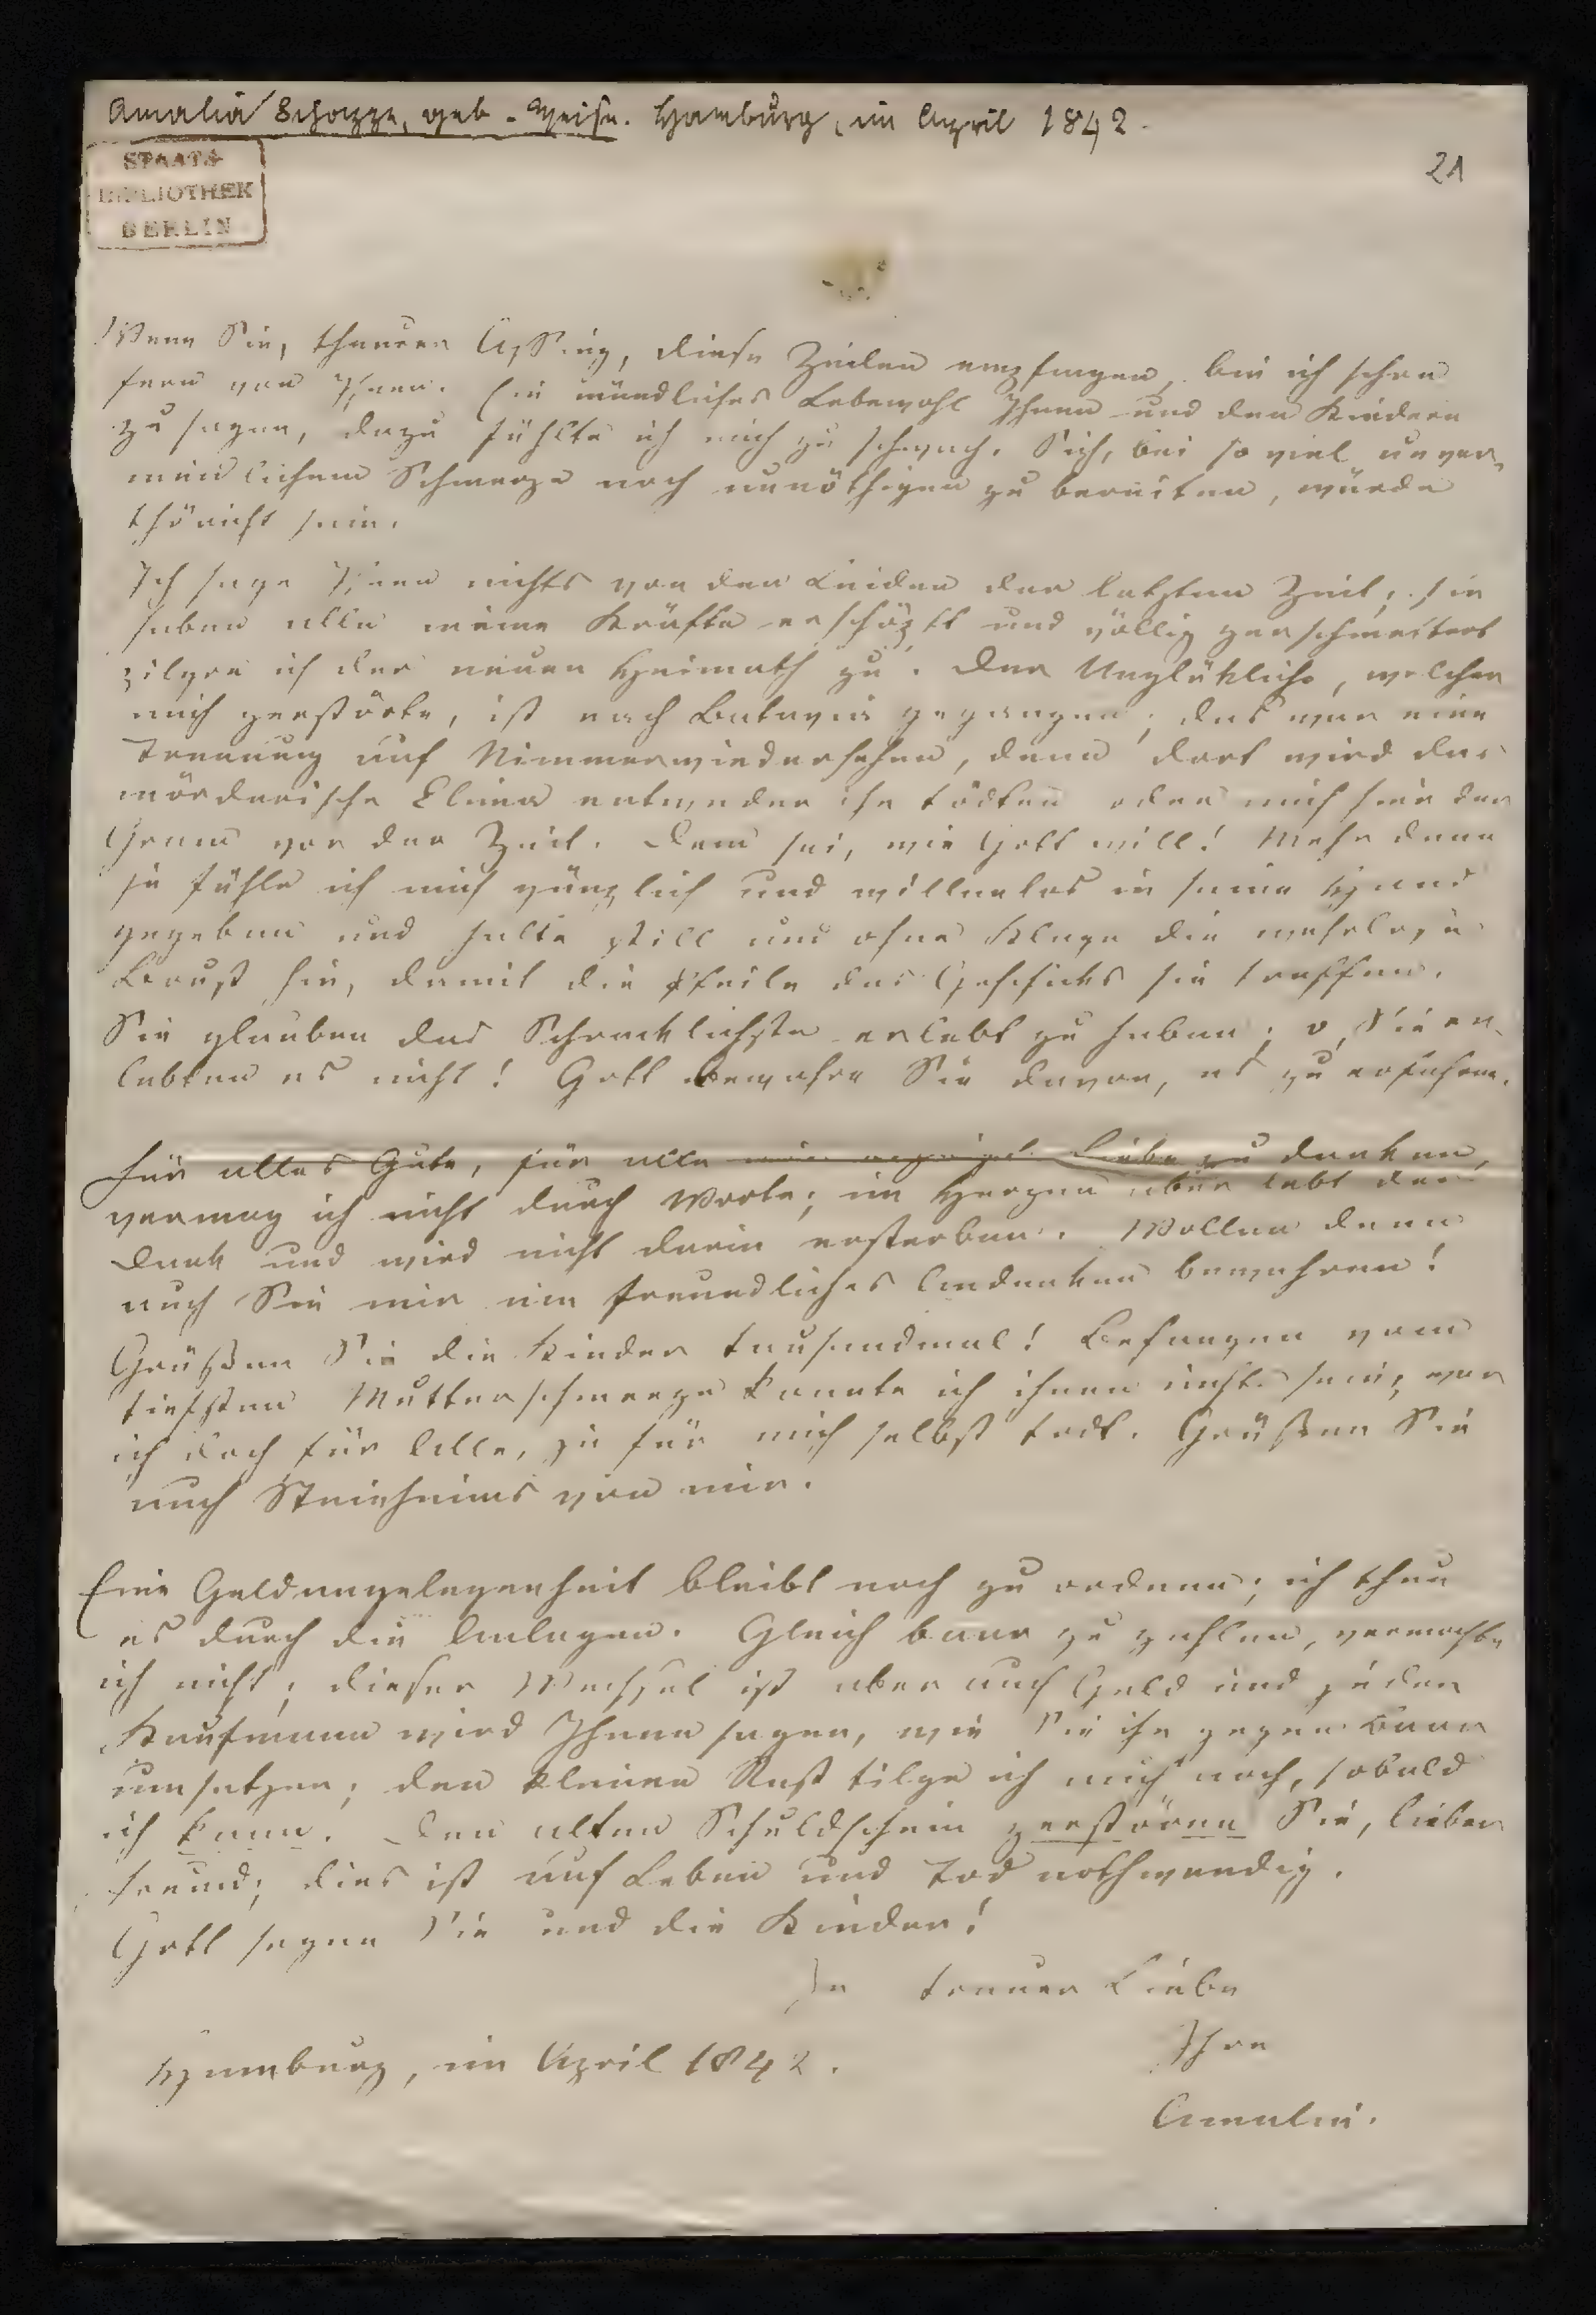 Amalia Schoppe, geb. Weise. Hamburg, im April 1842.
21
STAATS
BIBLIOTHEK
BERLIN
Wenn Sie, theurer Assing, diese Zeilen empfangen, bin ich schon
fern von Ihnen. Ein mündliches Lebewohl Ihnen und den Kindern
zu sagen, dazu fühlte ich mich zu schwach. Sich, bei so viel unver-
meidlichem Schmerze noch unnöthigen zu bereiten, würde
thöricht sein.
Ich sage Ihnen nichts von den Leiden der letzten Zeit; sie
haben alle meine Kräfte erschöpft und völlig zerschmettert
pilgre ich der neuen Heimath zu. Der Unglückliche, welcher
mich zerstörte, ist nach Batavia gegangen; das war eine
Trennung auf Nimmerwiedersehen, denn dort wird das
mörderische Clima entweder ihn tödten oder mich hier der
Gram vor der Zeit. Dem sei, wie Gott will! Mehr denn
je fühle ich mich gänzlich und willenlos in seine Hand
gegeben und halte still und ohne Klage die wehrlose
Brust hin, damit die Pfeile des Geschicks sie treffen.
Sie glauben das Schrecklichste erlebt zu haben; o, Sie er-
lebten es nicht! Gott bewahre Sie davor, es zu erfahren.
Für alles Gute, für alle Liebe zu danken,
vermag ich nicht durch Worte; im Herzen aber lebt der
Dank und wird nicht darin ersterben. Wollen denn
auch Sie mir ein freundliches Andenken bewahren!
Grüßen Sie die Kinder tausendmal! Befangen vom
tiefsten Mutterschmerze konnte ich ihnen nichts sein; war
ich doch für Alle, ja für mich selbst todt. Grüßen Sie
auch Steinheims von mir.
Eine Geldangelegenheit bleibt noch zu ordnen; ich thue
es durch die Anlagen. Gleich baar zu zahlen, vermochte
ich nicht; dieser Wechsel ist aber auch Geld und jeder
Kaufmann wird Ihnen sagen, wie Sie ihn gegen Baar
umsetzen; den kleinen Rest tilge ich auch noch, sobald
ich kann. Den alten Schuldschein zerstören Sie, lieber
Freund; dies ist auf Leben und Tod nothwendig.
Gott segne Sie und die Kinder!
In treuer Liebe
Ihre
Hamburg, im April 1842.
Amalia.